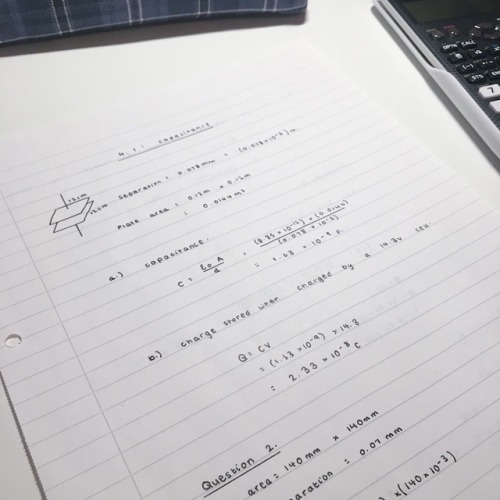 4.1: Capacitance
12cm
12cm
separation = 0.078mm = (0.078 × 10⁻³)m
Plate area = 0.12m × 0.12m
= 0.0144 m²
a.) capacitance.
C = ε₀ A / d = (8.85 × 10⁻¹²) × (0.0144) / (0.078 × 10⁻³)
= 1.63 × 10⁻⁹ F.
b.) charge stored when charged by a 14.3v cell.
Q = CV
= (1.63 × 10⁻⁹) × 14.3
= 2.33 × 10⁻⁸ C
Question 2.
area = 140mm × 140mm
paration = 0.07 mm
) × (140 × 10⁻³)
OPTN CALC
(-)
STO
7